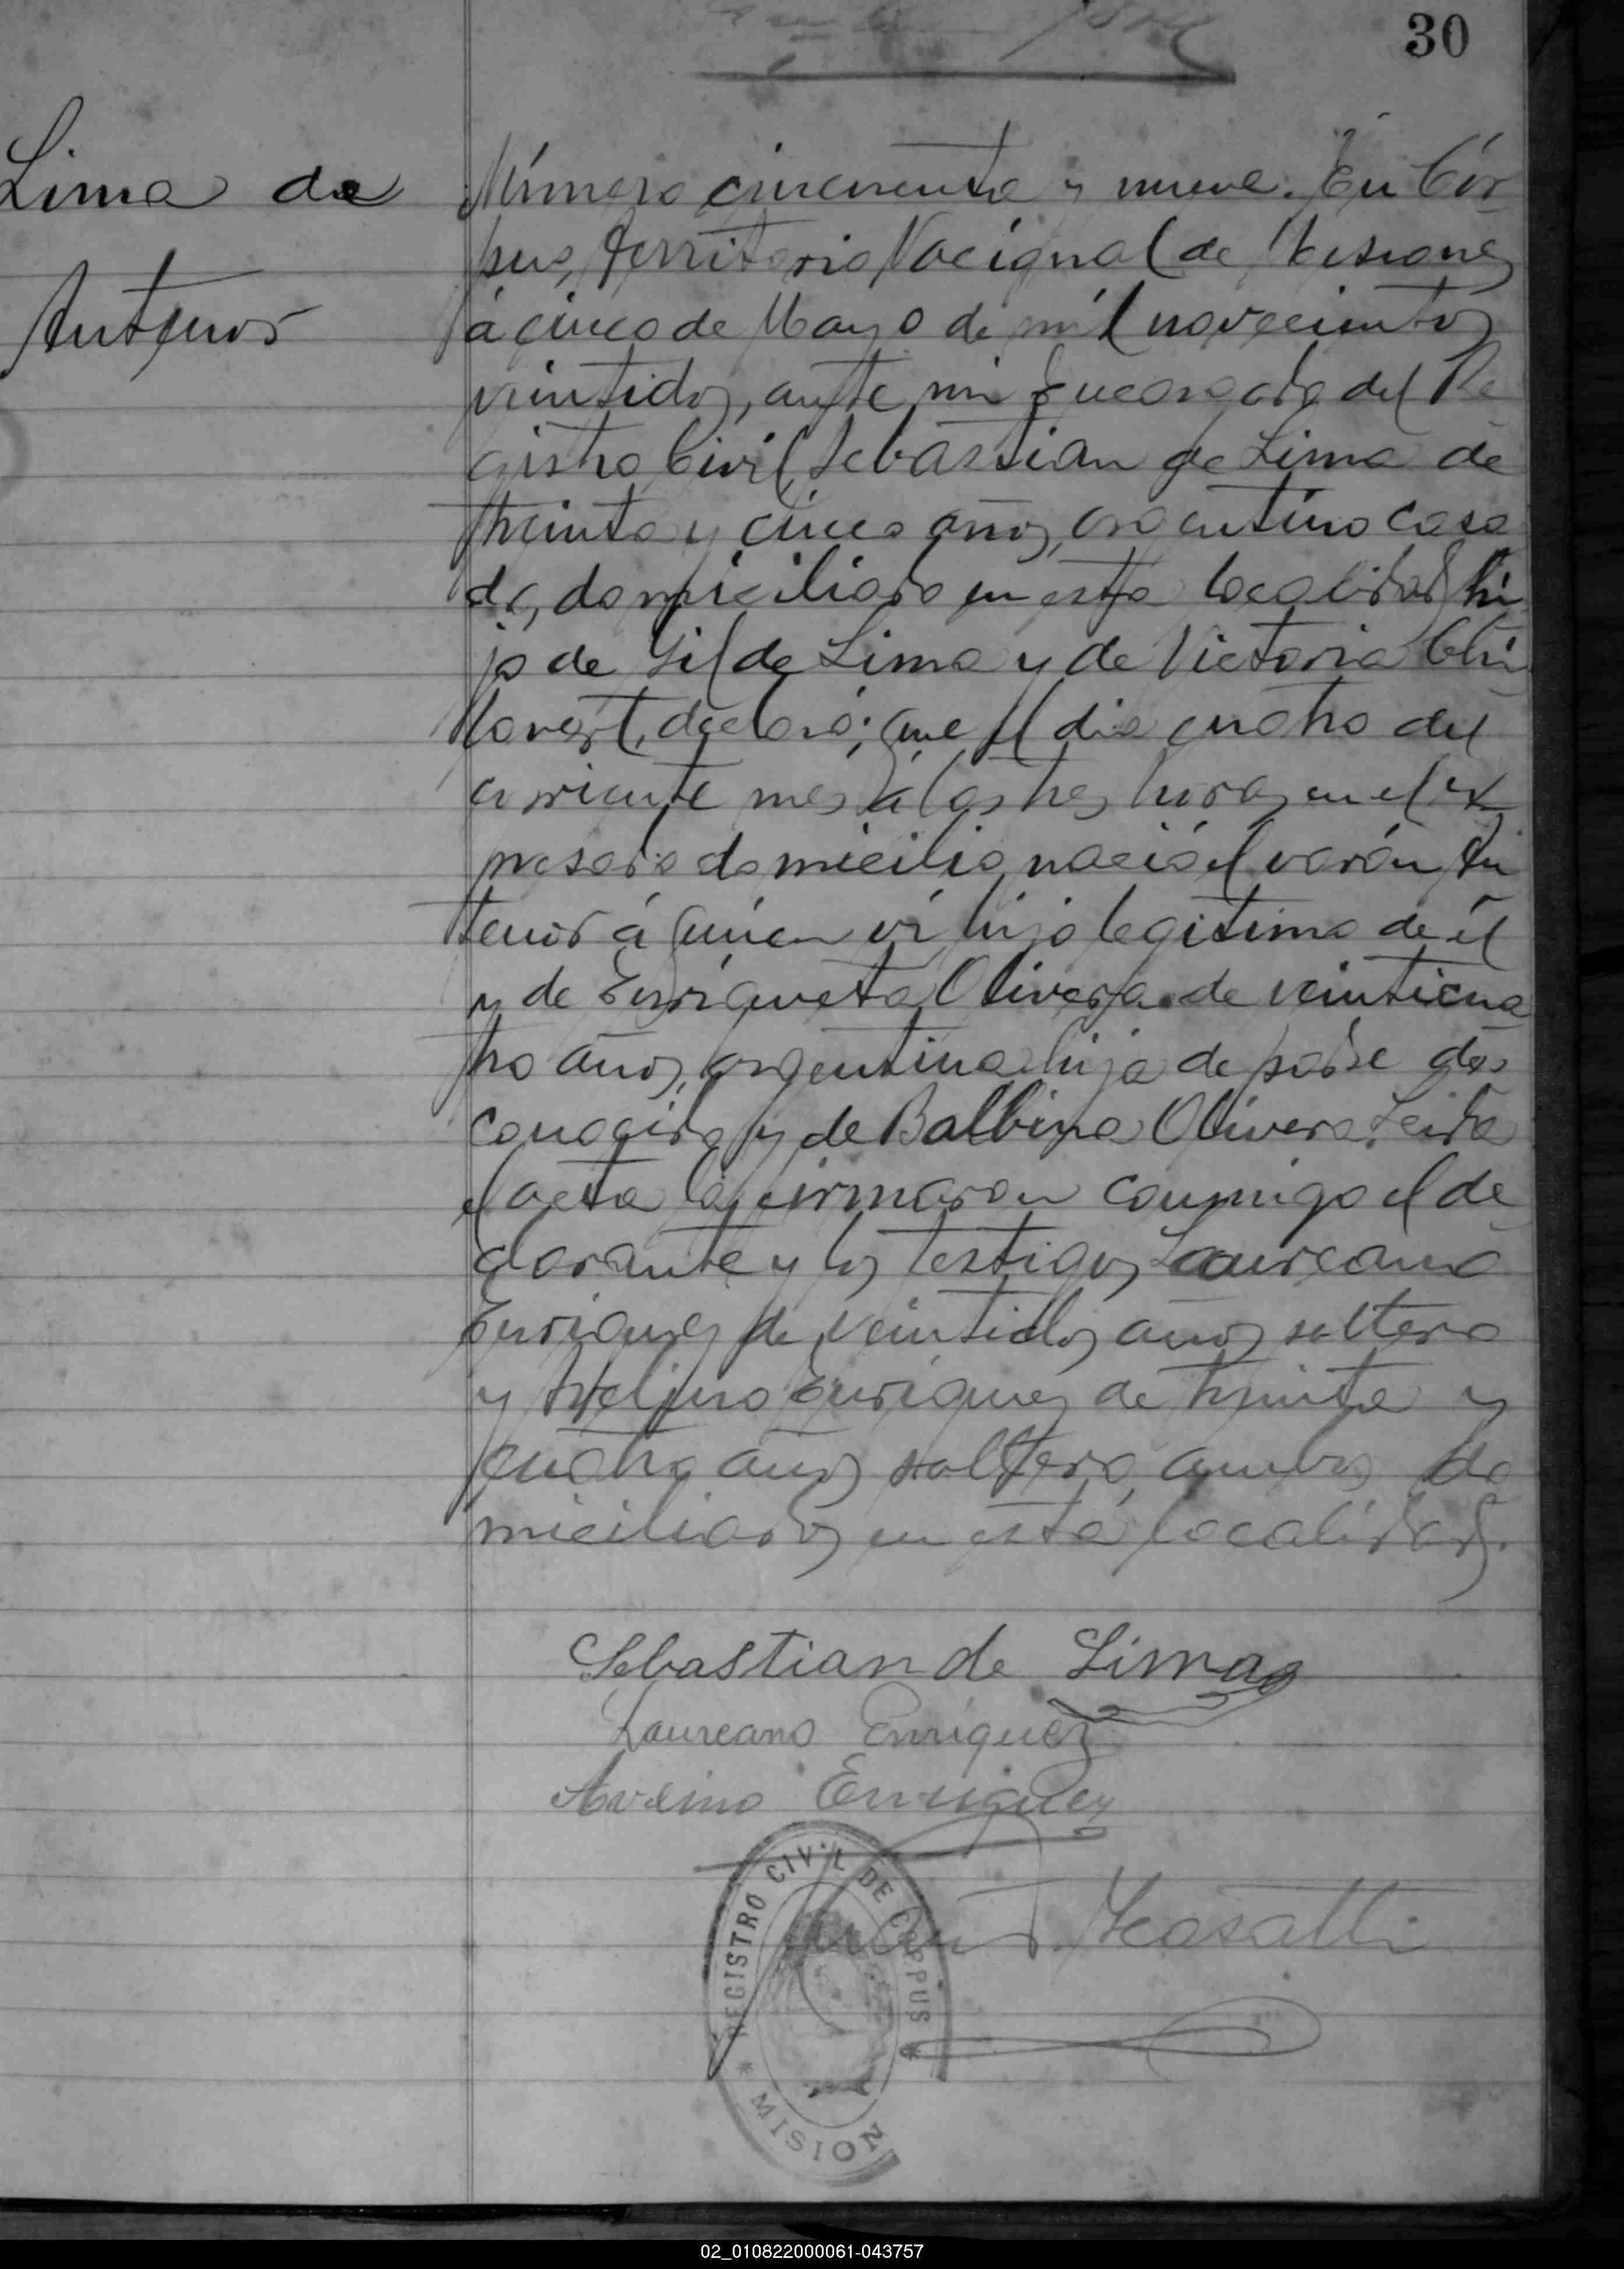 30
Lima de
Antenor
Número cincuenta y nueve. En Cór
pus, Territorio Nacional de Misiones
á cinco de Mayo de mil novecientos
veintidos, ante mi Encargado del Re
gistro Civil, Sebastian de Lima de
treinta y cinco años, argentino casa
do, domiciliado en esta localidad hi
jo de Gil de Lima y de Victoria Chi
lavert, declaró; que el dia cuatro del
corriente mes á las tres horas en el ex
presado domicilio nació el varón An
tenor á quien vi hijo legitimo de él
y de Enriqueta Olivera de veinticua
tro años, argentina hija de padre des
conocido y de Balbina Olivera. Leida
el acta la firmaron conmigo el de
clarante y los testigos Laureano
Enriques de veintidos años soltero
y Avelino Enriques de treinta y
cuatro años soltero, ambos do
miciliados en esta localidad.
Sebastian de Lima
Laureano Enriquez
Avelino Enriquez
REGISTRO CIVIL DE CORPUS
MISION
02_010822000061-043757